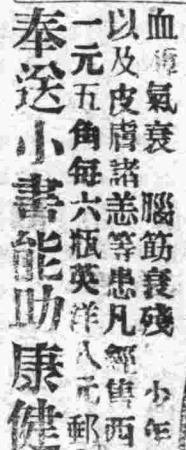 血氣衰 腦筋衰殘 少年
以及皮膚諸恙等患凡經售西
一元五角每六瓶英洋八元郵
奉送小書能助康健